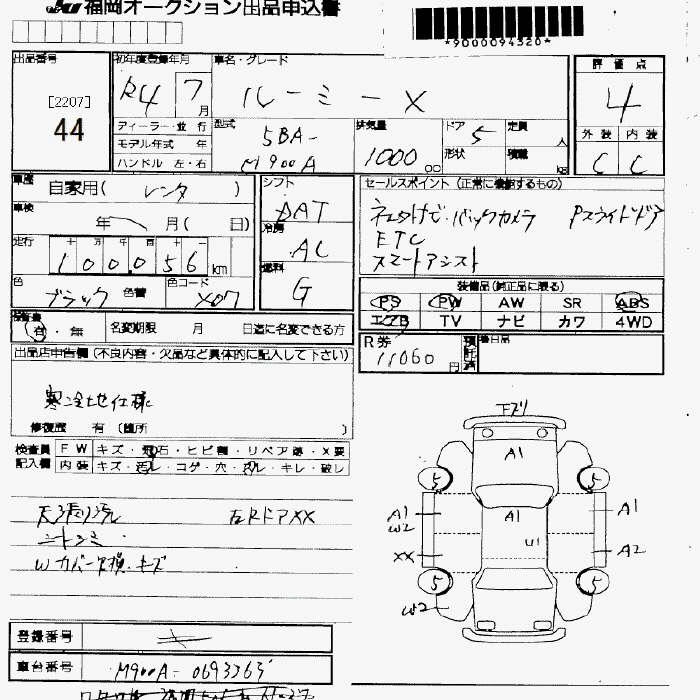 福岡オークション出品申込書
*9000094320*
出品番号
[2207]
44
初年度登録年月
R4 7月
車名・グレード
ルーミー X
評価点
4
外装 内装
C C
ディーラー・並行
モデル年式 年
ハンドル 左・右
型式
5BA-
M900A
排気量
1000 cc
ドア 5
形状
定員 人
積載 kg
車歴
自家用( レンタ )
車検
年 月( 日)
走行
100,056 km
色
ブラック
色替
色コード
X07
シフト
DAT
冷房
AC
燃料
G
セールスポイント (正常に機能するもの)
ETC
スマートアシスト
装備品(純正品に限る)
PS PW AW SR ABS
エアB TV ナビ カワ 4WD
有・無
名変期限 月 日迄に名変できる方
R券
11060 円
預託済
出品店申告欄 (不良内容・欠品など具体的に記入して下さい)
寒冷地仕様
修復歴 有 (箇所 )
検査員
記入欄
FW キズ・飛石・ヒビ割・リペア跡・X要
内装 キズ・汚レ・コゲ・穴・スレ・キレ・破レ
天張り汚レ
右RドアXX
シートシミ
下ズリ
A1
A1
U1
A1
W2
XX
W2
A1
A2
5
5
5
5
登録番号
車台番号
M900A-